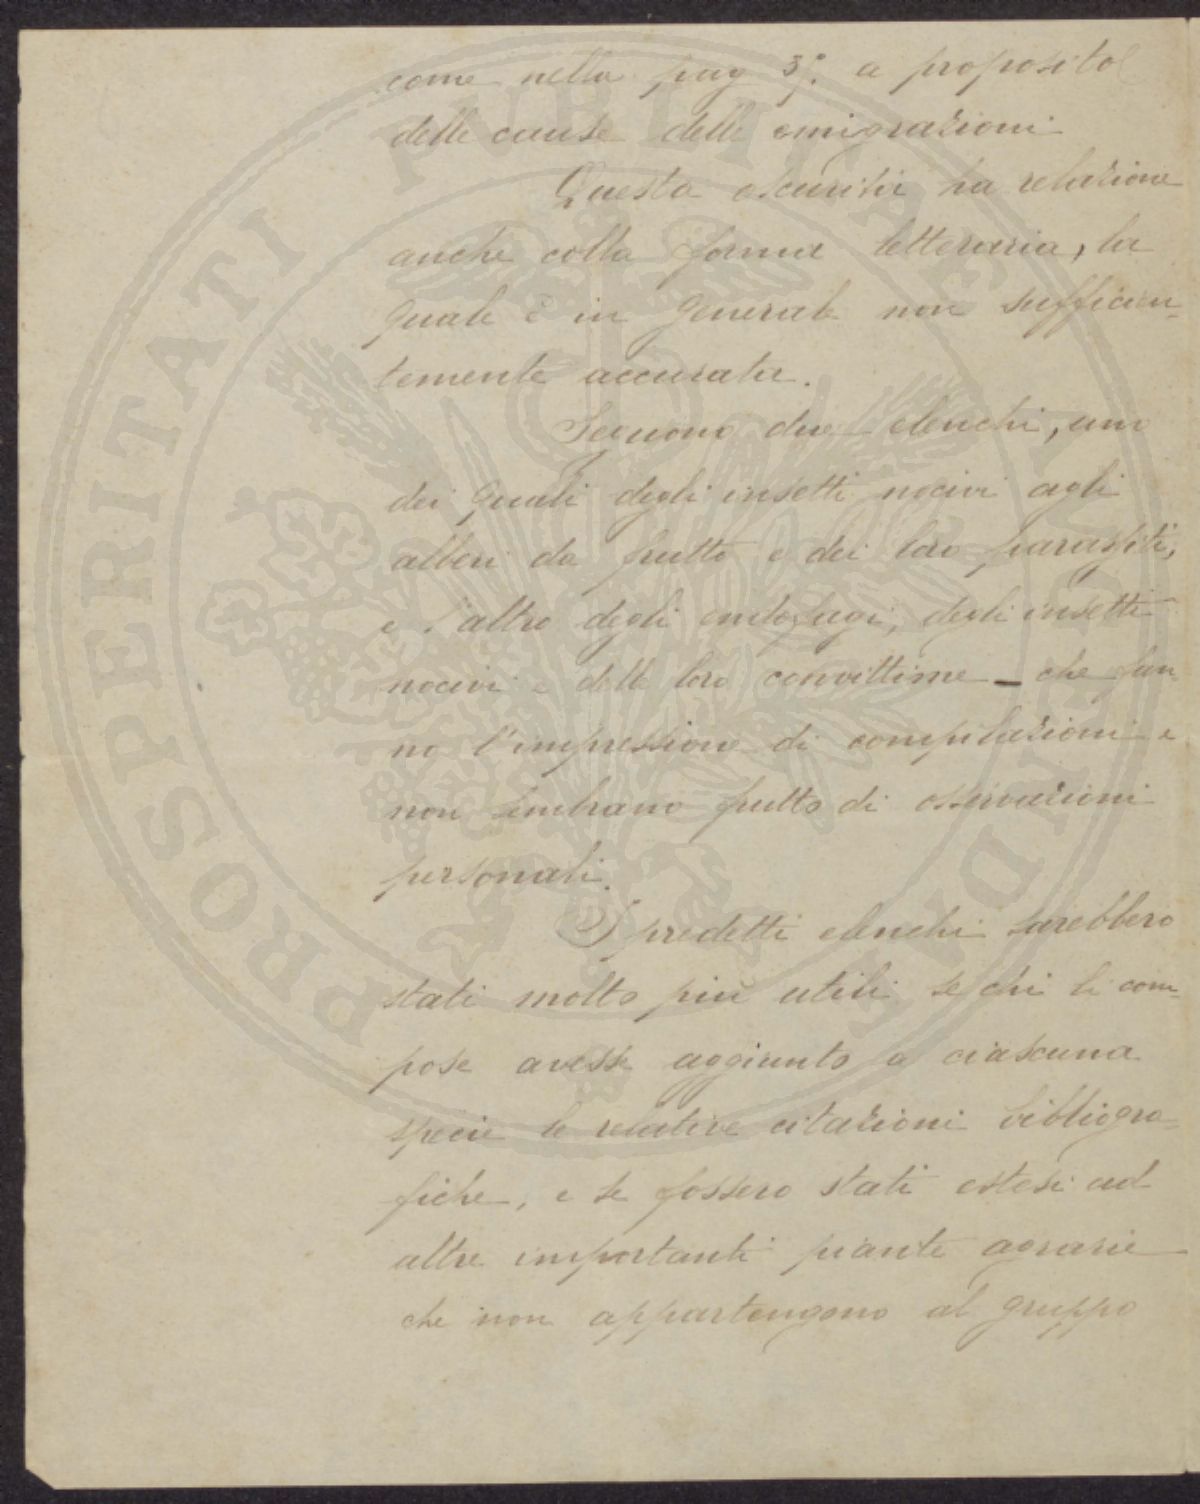 come nella pag 3ª. a proposito
delle cause delle emigrazioni
Questa oscurità ha relazione
anche colla forma letteraria, la
quale è in generale non sufficien-
temente accurata.
Seguono due elenchi, uno
dei quali degli insetti nocivi agli
alberi da frutto e dei loro parassiti,
e l'altro degli entofagi, degli insetti
nocivi e delle loro convittime _ che fan-
no l'impressione di compilazioni e
non sembrano frutto di osservazioni
personali.
I predetti elenchi sarebbero
stati molto più utili se chi li com-
pose avesse aggiunto a ciascuna
specie le relative citazioni bibliogra-
fiche, e se fossero stati estesi ad
altre importanti piante agrarie
che non appartengono al gruppo
PROSPERITATI PUBLICAE